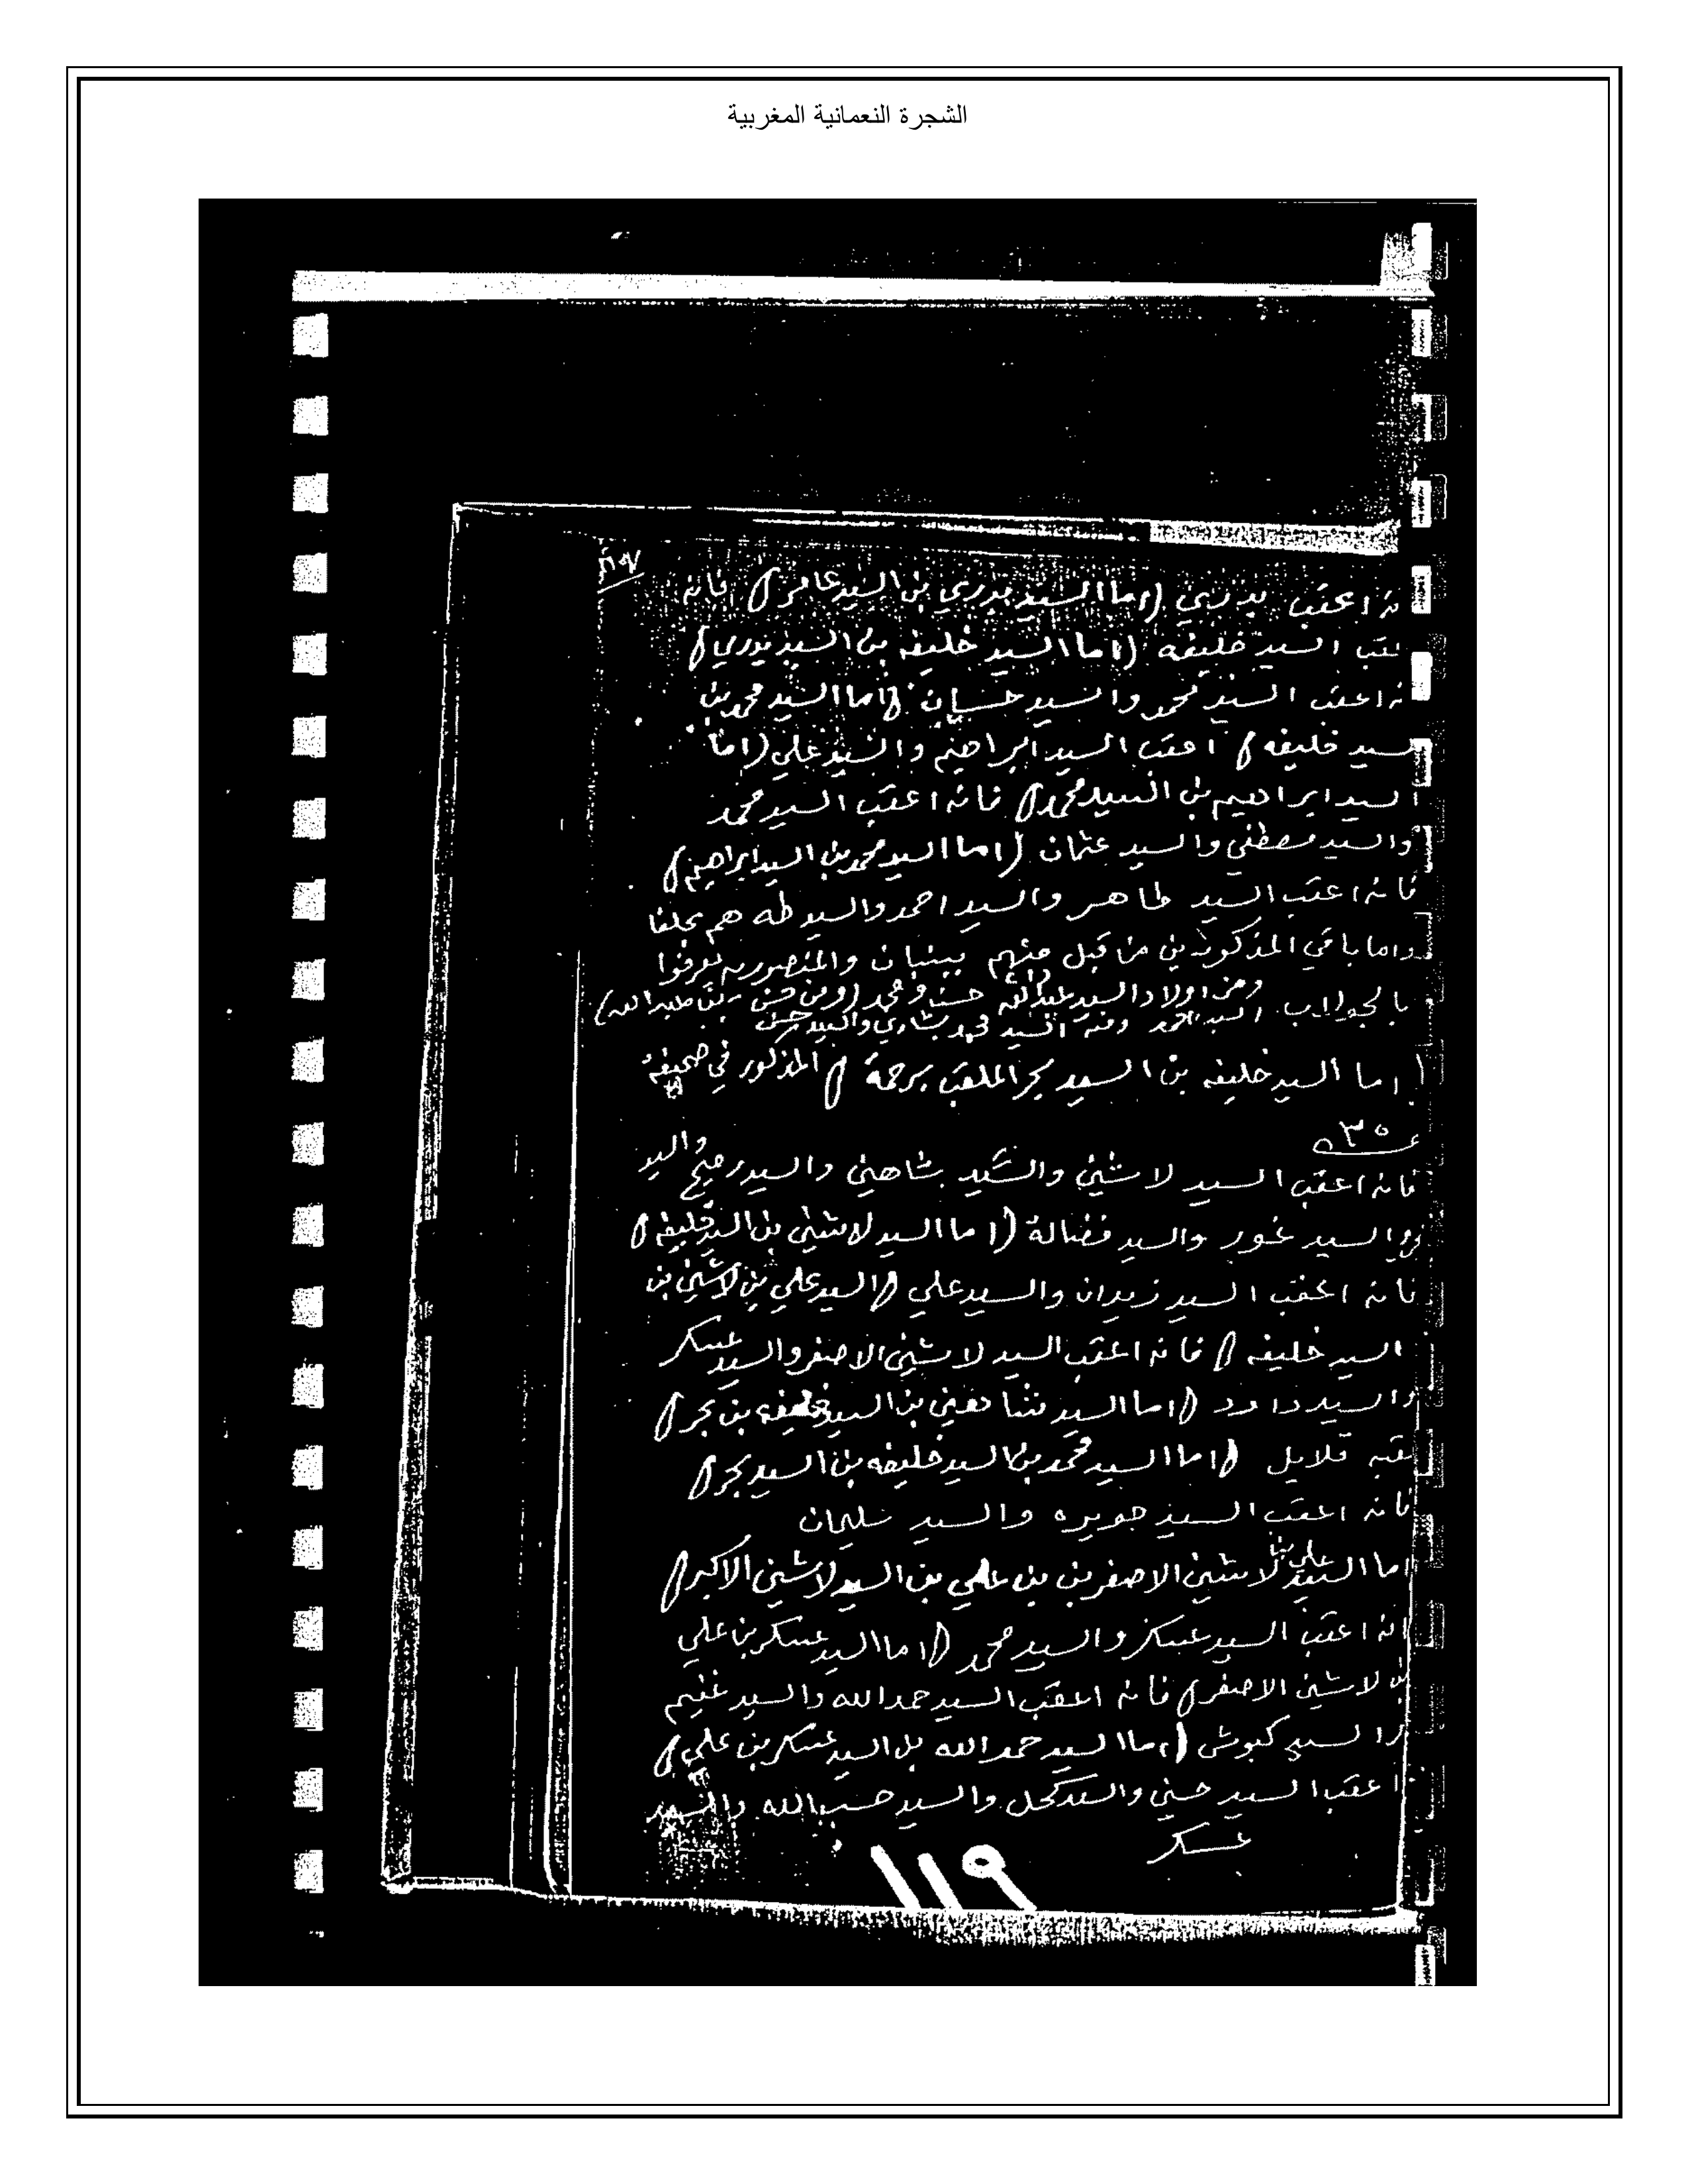 الشجرة النعمانية المغربية
نه اعقب بدري (اما السيد بدري بن السيد عامر) فانه
عقب السيد خليفه (اما السيد خليفه بن السيد بدري)
نه اعقب السيد محمد والسيد حسان (اما السيد محمد بن
السيد خليفه) اعقب السيد ابراهيم والسيد علي (اما
السيد ابراهيم بن السيد محمد) فانه اعقب السيد محمد
والسيد مصطفي والسيد عثمان (اما السيد محمد بن السيد ابراهيم)
فانه اعقب السيد طاهر والسيد احمد والسيد طه هم
واما باقي المذكورين من قبل منهم ببنبان والمنصوريه
ومن اولاد السيد عبدالله حسن ومحمد (ومن حسن
السيد احمد ومنه السيد محمد والسيد حسن
اما السيد خليفه بن السيد بحر الملقب برحمة) المذكور في صحيفة
فانه اعقب السيد لاشين والسيد شاهين والسيد والسيد
والسيد غور والسيد فضالة (اما السيد لاشين بن السيد خليفه)
فانه اعقب السيد زيدان والسيد علي (السيد علي بن لاشين بن
السيد خليفه) فانه اعقب السيد لاشين الاصغر والسيد عسكر
والسيد داود (اما السيد شاهين بن السيد خليفه بن بحر)
عقبه قلايل (اما السيد محمد بن السيد خليفه بن السيد بحر)
فانه اعقب السيد جويره والسيد سليمان
اما السيد علي بن لاشين الاصغر بن بن علي بن السيد لاشين الاكبر)
انه اعقب السيد عسكر والسيد محمد (اما السيد عسكر بن علي
بن لاشين الاصغر) فانه اعقب السيد حمد الله والسيد غنيم
والسيد كبوش (اما السيد حمد الله بن السيد عسكر بن علي)
اعقب السيد حسني والسيد كحل والسيد حسب الله والسيد
عسكر
١١٩